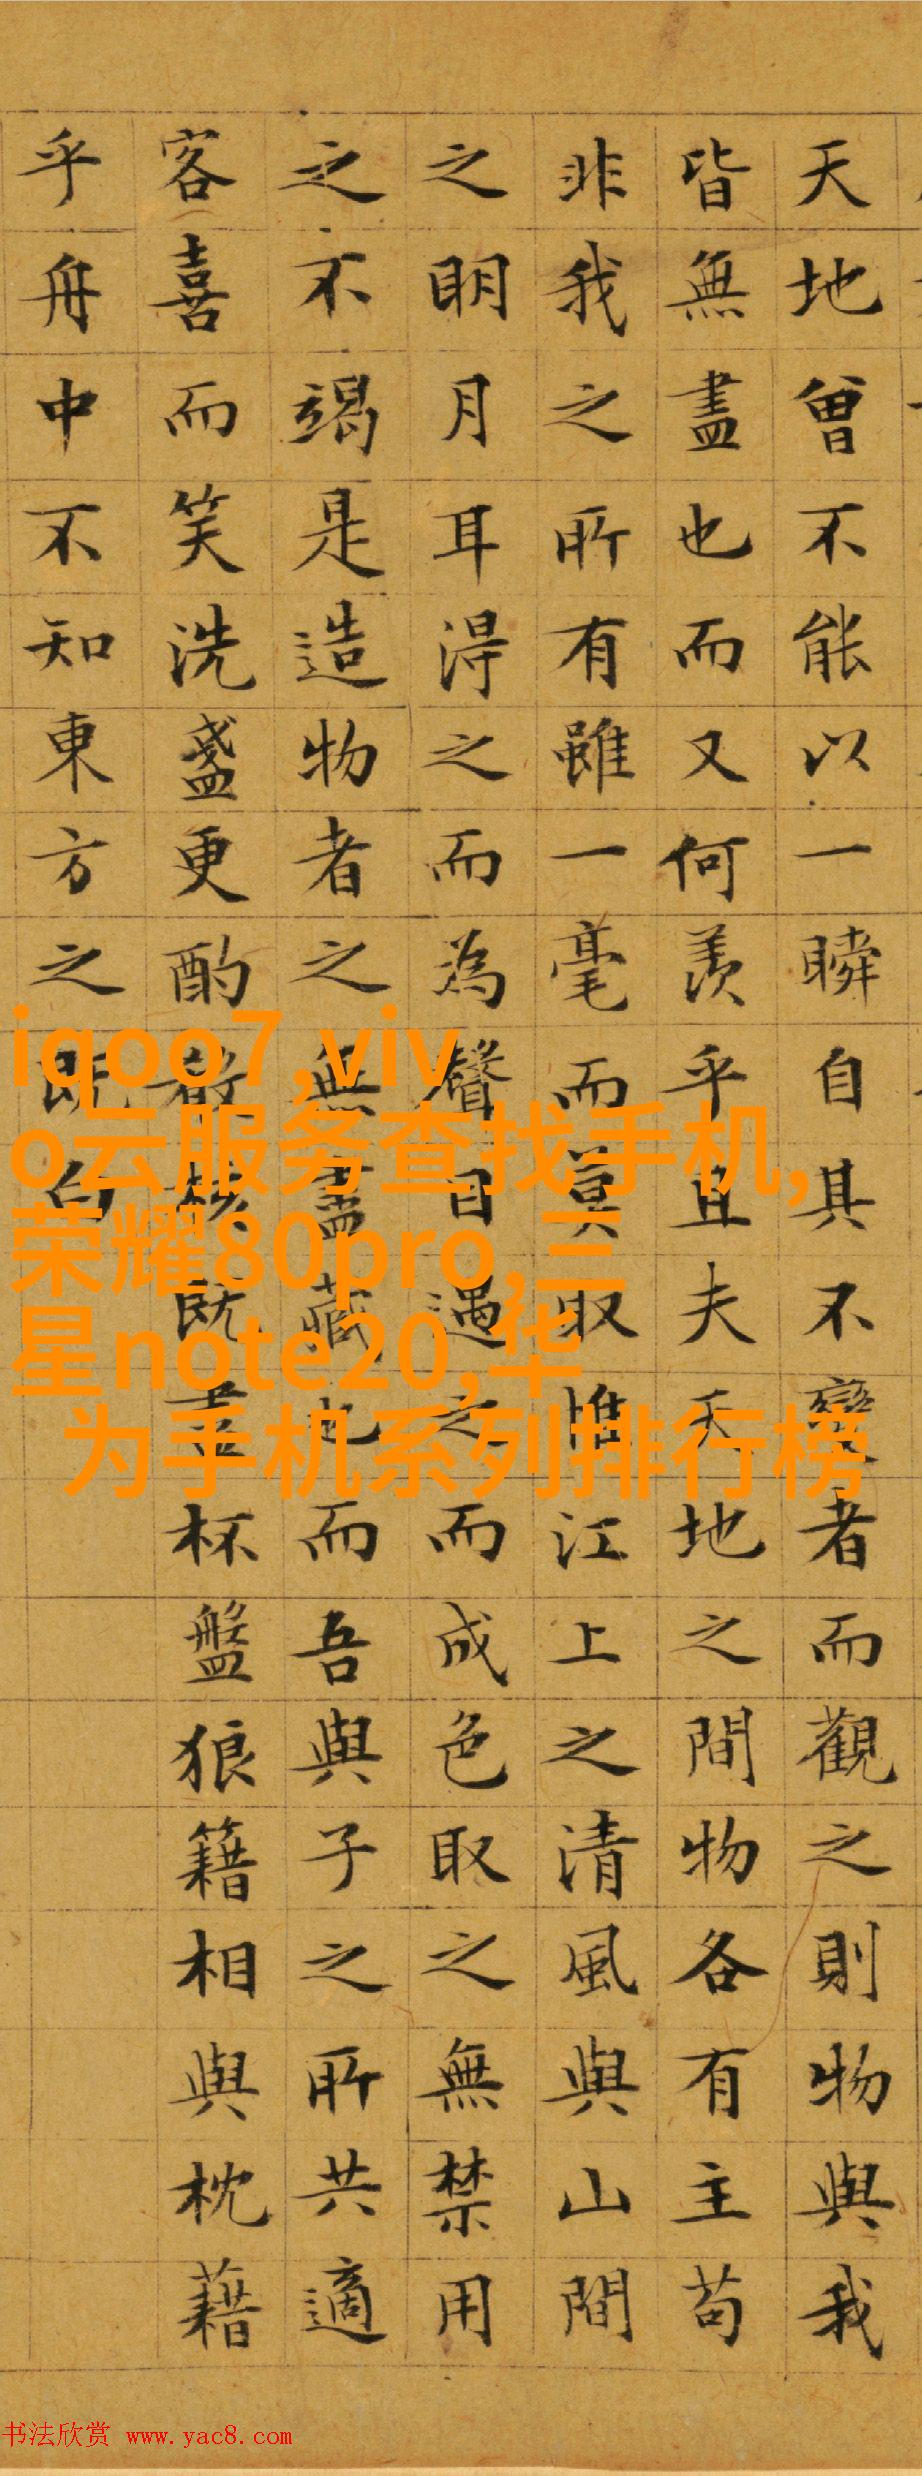 天地曾不能以一瞬自其不變者而觀之則物與我
皆無盡也而又何羨乎且夫天地之間物各有主苟
非我之所有雖一毫而莫取惟江上之清風與山間
之明月耳得之而為聲目遇之而成色取之無禁用
之不竭是造物者之無盡藏也而吾與子之所共適
客喜而笑洗盞更酌殽核既盡杯盤狼籍相與枕藉
乎舟中不知東方之既白
iqoo7,viv
o云服务查找手机,
荣耀80pro,三
星note20,华
为手机系列排行榜
书法欣赏 www.yac8.com